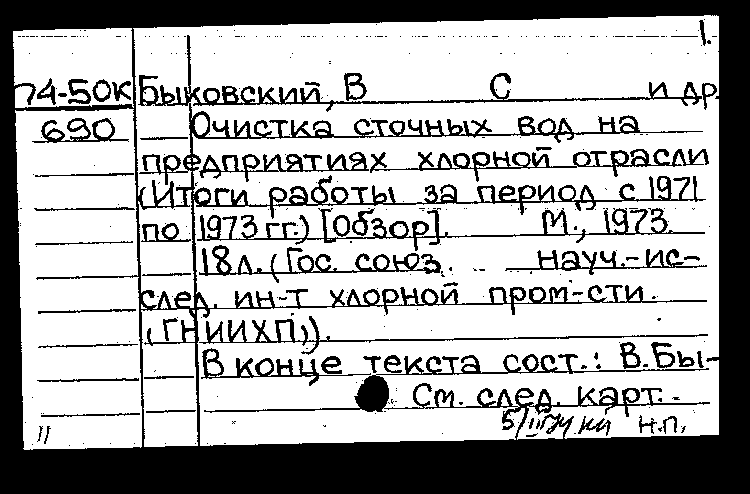 1.
74-50К Быковский, В С и др.
690 Очистка сточных вод на
предприятиях хлорной отрасли
(Итоги работы за период с 1971
по 1973 гг.) [Обзор]. М., 1973.
18л. (Гос. союз. науч.-ис-
след. ин-т хлорной пром-сти.
(ГНИИХП)).
В конце текста сост.: В.Бы-
См. след. карт.
11 Н.П.